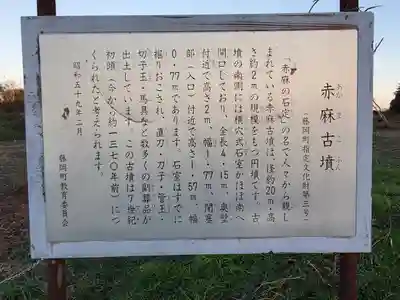 赤麻古墳
あか ま こ ふん
(藤岡町指定文化財第三号)
「赤麻の石室」の名で人々から親し
まれている赤麻古墳は、径約20m・高
さ約2mの規模をもつ円墳です。古
墳の南側には横穴式石室がほぼ南へ
開口しており、全長4.15m、奥壁
付近で高さ2m・幅1.77m、閉塞
部(入口)付近で高さ1.57m・幅
0.77mであります。石室はすでに
掘りおこされ、直刀・刀子・管玉・
切子玉・馬具など数多くの副葬品が
出土しています。この古墳は7世紀
初頭(今から約一三七〇年前)につ
くられたと考えられます。
昭和五十九年二月
藤岡町教育委員会